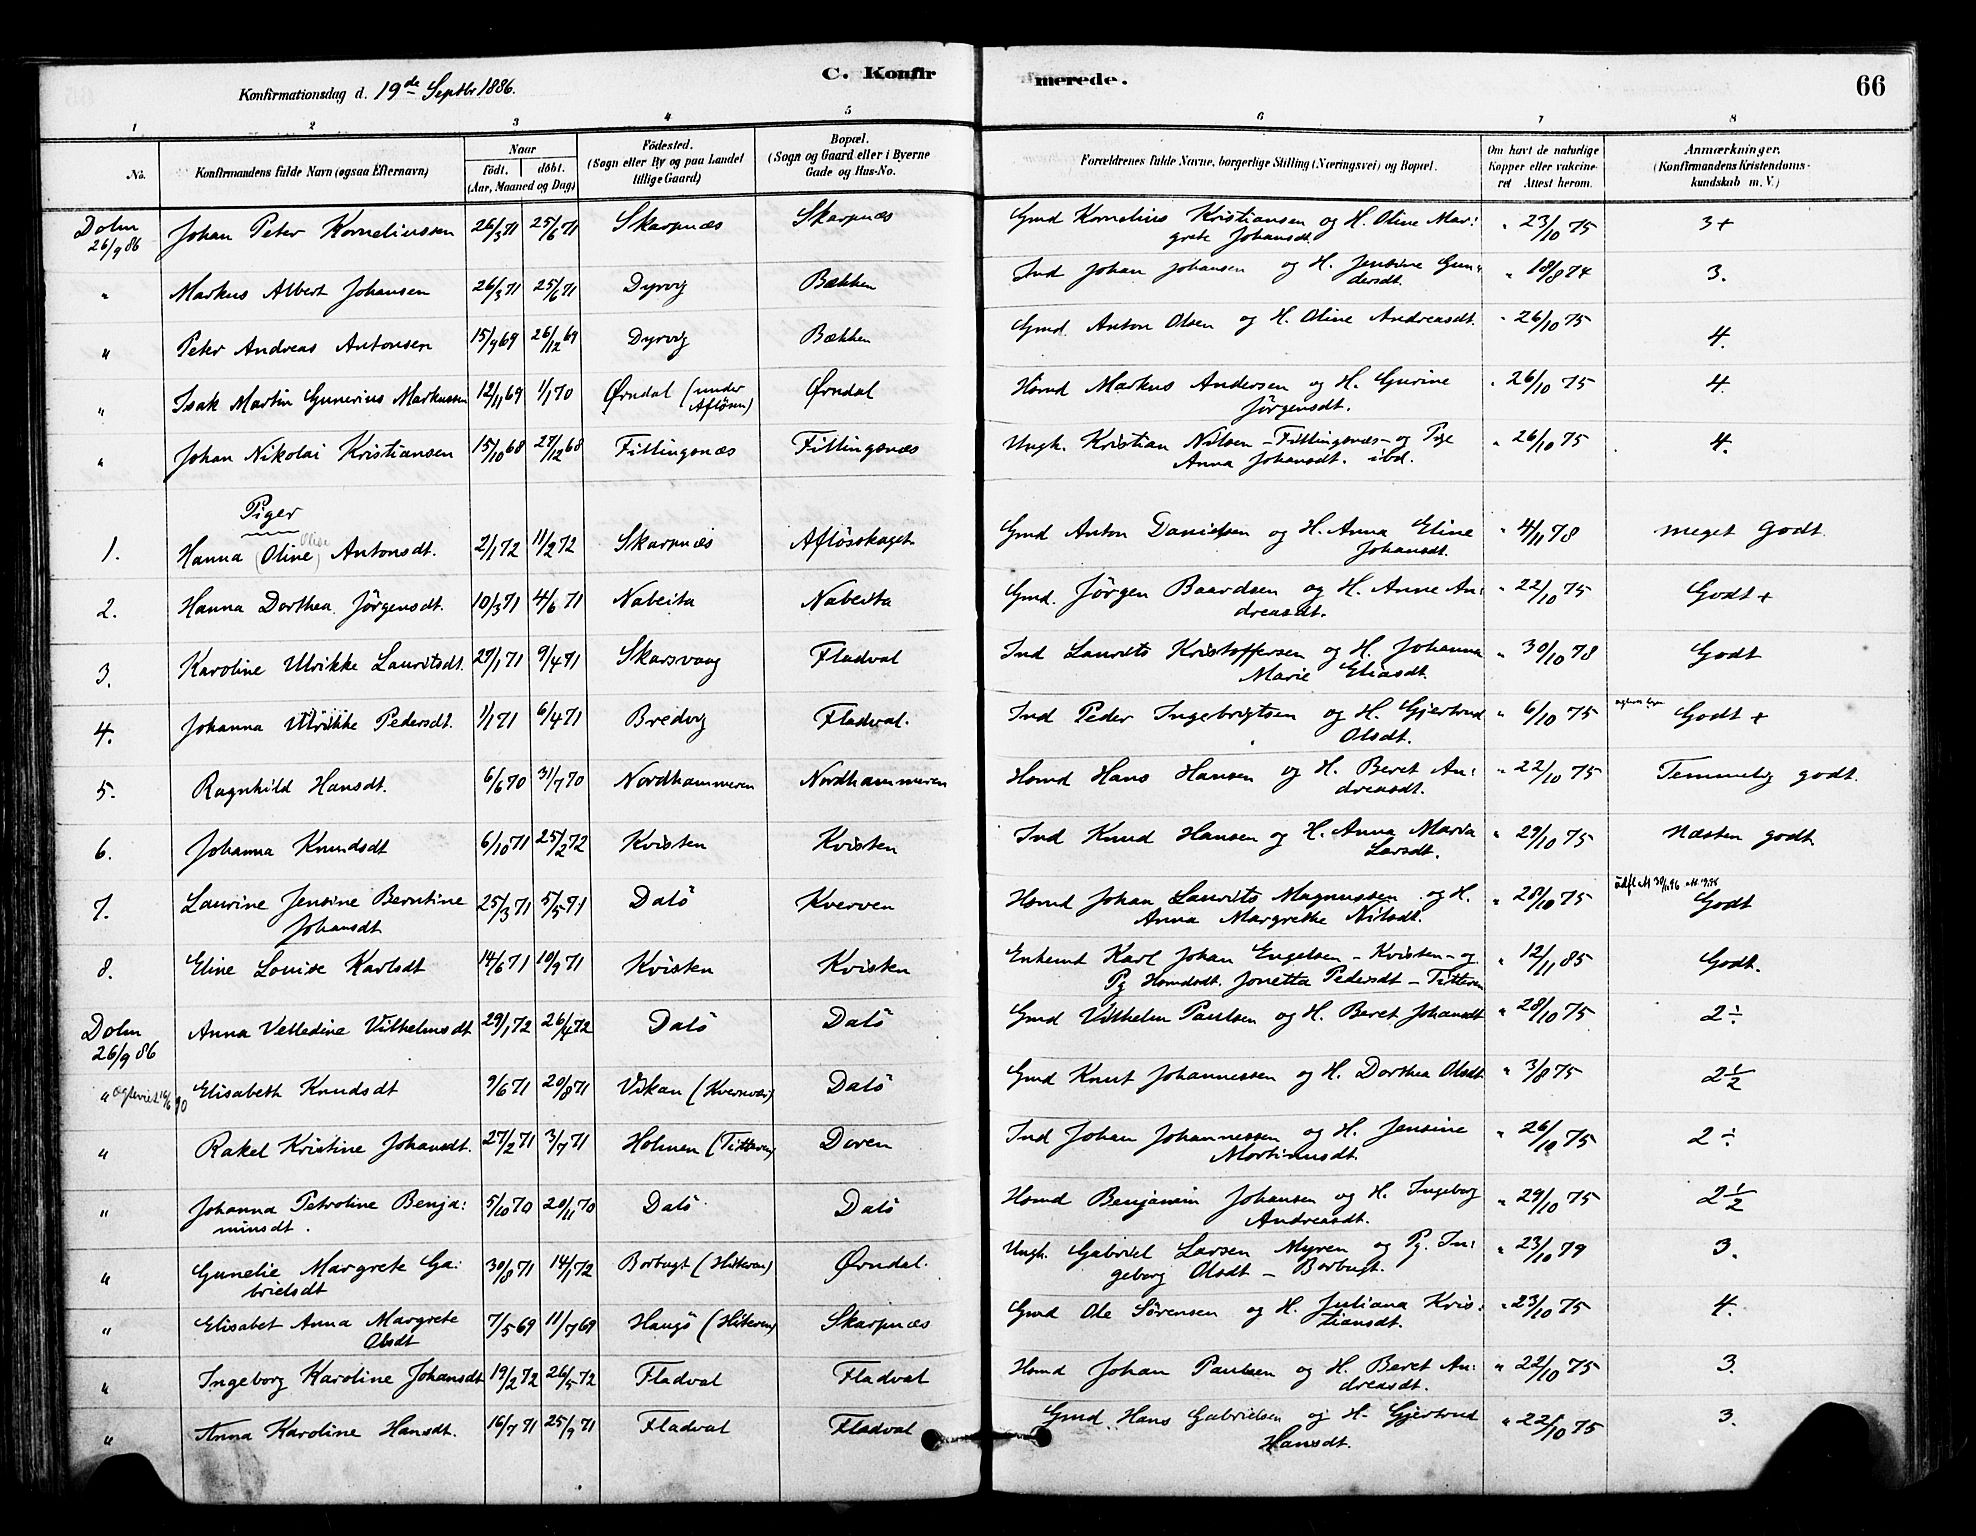 C. Konfirmerede.
66
Konfirmationsdag d. 19de Septbr 1886.
1 2 3 4 5 6 7 8
No. Konfirmandens fulde Navn (ogsaa Efternavn) Naar født. døbt. (Aar, Maaned og Dag) Fødested. (Sogn eller By og paa Landet tillige Gaard) Bopæl. (Sogn og Gaard eller i Byerne Gade og Hus-No. Forældrenes fulde Navne, borgerlige Stilling (Næringsvei) og Bopæl. Om havt de naturlige Kopper eller vakcineret Attest herom. Anmærkninger. (Konfirmandens Kristendomskundskab m. V.)
Dolm 26/9 86 Johan Peter Korneliussen 26/3 71 25/6 71 Skarpnæs Skarpnæs Gmd Kornelius Kristiansen og H. Oline Mar:grete Johansdt. " 23/10 75 3+
" Markus Albert Johansen 26/3 71 25/6 71 Dyrvig Bækken Ind Johan Johansen og H. Jensine Gundersdt. " 18/8 74 3.
" Peter Andreas Antonsen 15/9 69 26/12 69 Dyrvig Bækken Gmd. Anton Olsen og H. Oline Andreasdt. " 26/10 75 4.
" Isak Martin Gunerius Markussen 12/11 69 1/1 70 Ørndal (under Afløsen) Ørndal Hsmd Markus Andersen og H. Gurine Jørgensdt. " 26/10 75 4.
" Johan Nikolai Kristiansen 15/10 68 27/12 68 Fillingsnæs Fillingsnæs Ungk. Kristian Nilsen - Fillingsnæs - og Pige Anna Johansdt. ibd. " 26/10 75 4.
Piger
1. Hanna (Oline) Olise Antonsdt. 2/1 72 11/2 72 Skarpnæs Afløsskaget Gmd Anton Danielsen og H. Anna Eline Johansdt. " 4/11 78 meget Godt
2. Hanna Dorthea Jørgensdt. 10/3 71 4/6 71 Nabeita Nabeita Gmd. Jørgen Baardsen og H. Anne An:dreasdt. " 22/10 75 Godt +
3. Karoline Ulrikke Lauritsdt. 29/1 71 9/4 71 Skarsvaag Fladval Ind Laurits Kristoffersen og H. Johanna Marie Eliasdt. " 30/10 78 Godt
4. Johanna Ulrikke Pedersdt. 1/1 71 6/4 71 Bredvig Fladval. Ind Peder Ingebrigtsen og H. Gjertrud Olsdt. " 6/10 75 Godt +
5. Ragnhild Hansdt. 6/6 70 31/7 70 Nordhammeren Nordhammeren Hsmd Hans Hansen og H. Beret An:dreasdt. " 22/10 75 Temmelig godt.
6. Johanna Knudsdt 6/10 71 25/2 72 Kvisten Kvisten Ind Knud Hansen og H. Anna Maria Larsdt. " 29/10 75 Næsten godt
7. Laurine Jensine Berntine Johansdt 25/3 71 5/5 71 Dalö Kverven Hsmd Johan Laurits Magnussen og H. Anna Margrethe Nilsdt. " 28/10 75 Godt
8. Eline Louise Karlsdt 14/6 71 10/9 71 Kvisten Kvisten Enkemd Karl Johan Engelsen - Kvisten - og Pg Hsmdsdt. Jonetta Pedersdt - Titteren " 12/11 85 Godt.
Dolm 26/9 86 Anna Velledine Vilhelmsdt 29/1 72 26/4 72 Dalö Dalö Gmd Vilhelm Paulsen og H. Beret Johansdt " 28/10 75 2 ÷
" Elisabeth Knudsdt 9/6 71 20/8 71 Vikan (Kvernvær) Dalö Gmd Knut Johannessen og H. Dorthea Olsdt " 3/8 75 2 1/2
" Rakel Kristine Johansdt. 27/2 71 3/7 71 Holmen (Titteren) Doren Ind Johan Johannessen og H. Jensine Martinusdt. " 26/10 75 2 ÷
" Johanna Petroline Benja:minsdt. 5/10 70 20/11 70 Dalö Dalö Hsmd Benjamin Johansen og H. Ingeborg Andreasdt. " 29/10 75 2 1/2
" Gunelie Margrete Ga:brielsdt 30/8 71 14/1 72 Borbugt (Hiteren) Ørndal. Ungk. Gabriel Larsen Myren og Pg. In:geborg Olsdt - Borbugt. " 23/10 79 3.
" Elisabet Anna Margrete Olsdt 7/5 69 11/7 69 Haugö (Hiteren) Skarpnæs Gmd Ole Sørensen og H. Juliana Kris:tiansdt. " 23/10 75 4.
" Ingeborg Karoline Johansdt 19/2 72 26/5 72 Fladval Fladval Hsmd Johan Paulsen og H. Beret An:dreasdt. " 22/10 75 3.
" Anna Karoline Hansdt. 16/7 71 25/9 71 Fladval Fladval Gmd. Hans Gabrielsen og H. Gjertrud Hansdt. " 22/10 75 3.